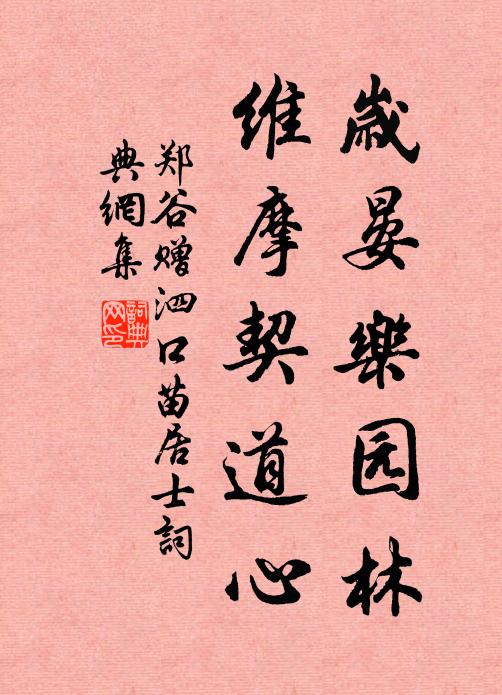 歲晏樂园林
维摩契道心
郑谷赠泗口苗居士詞
典網集
詞典
网印